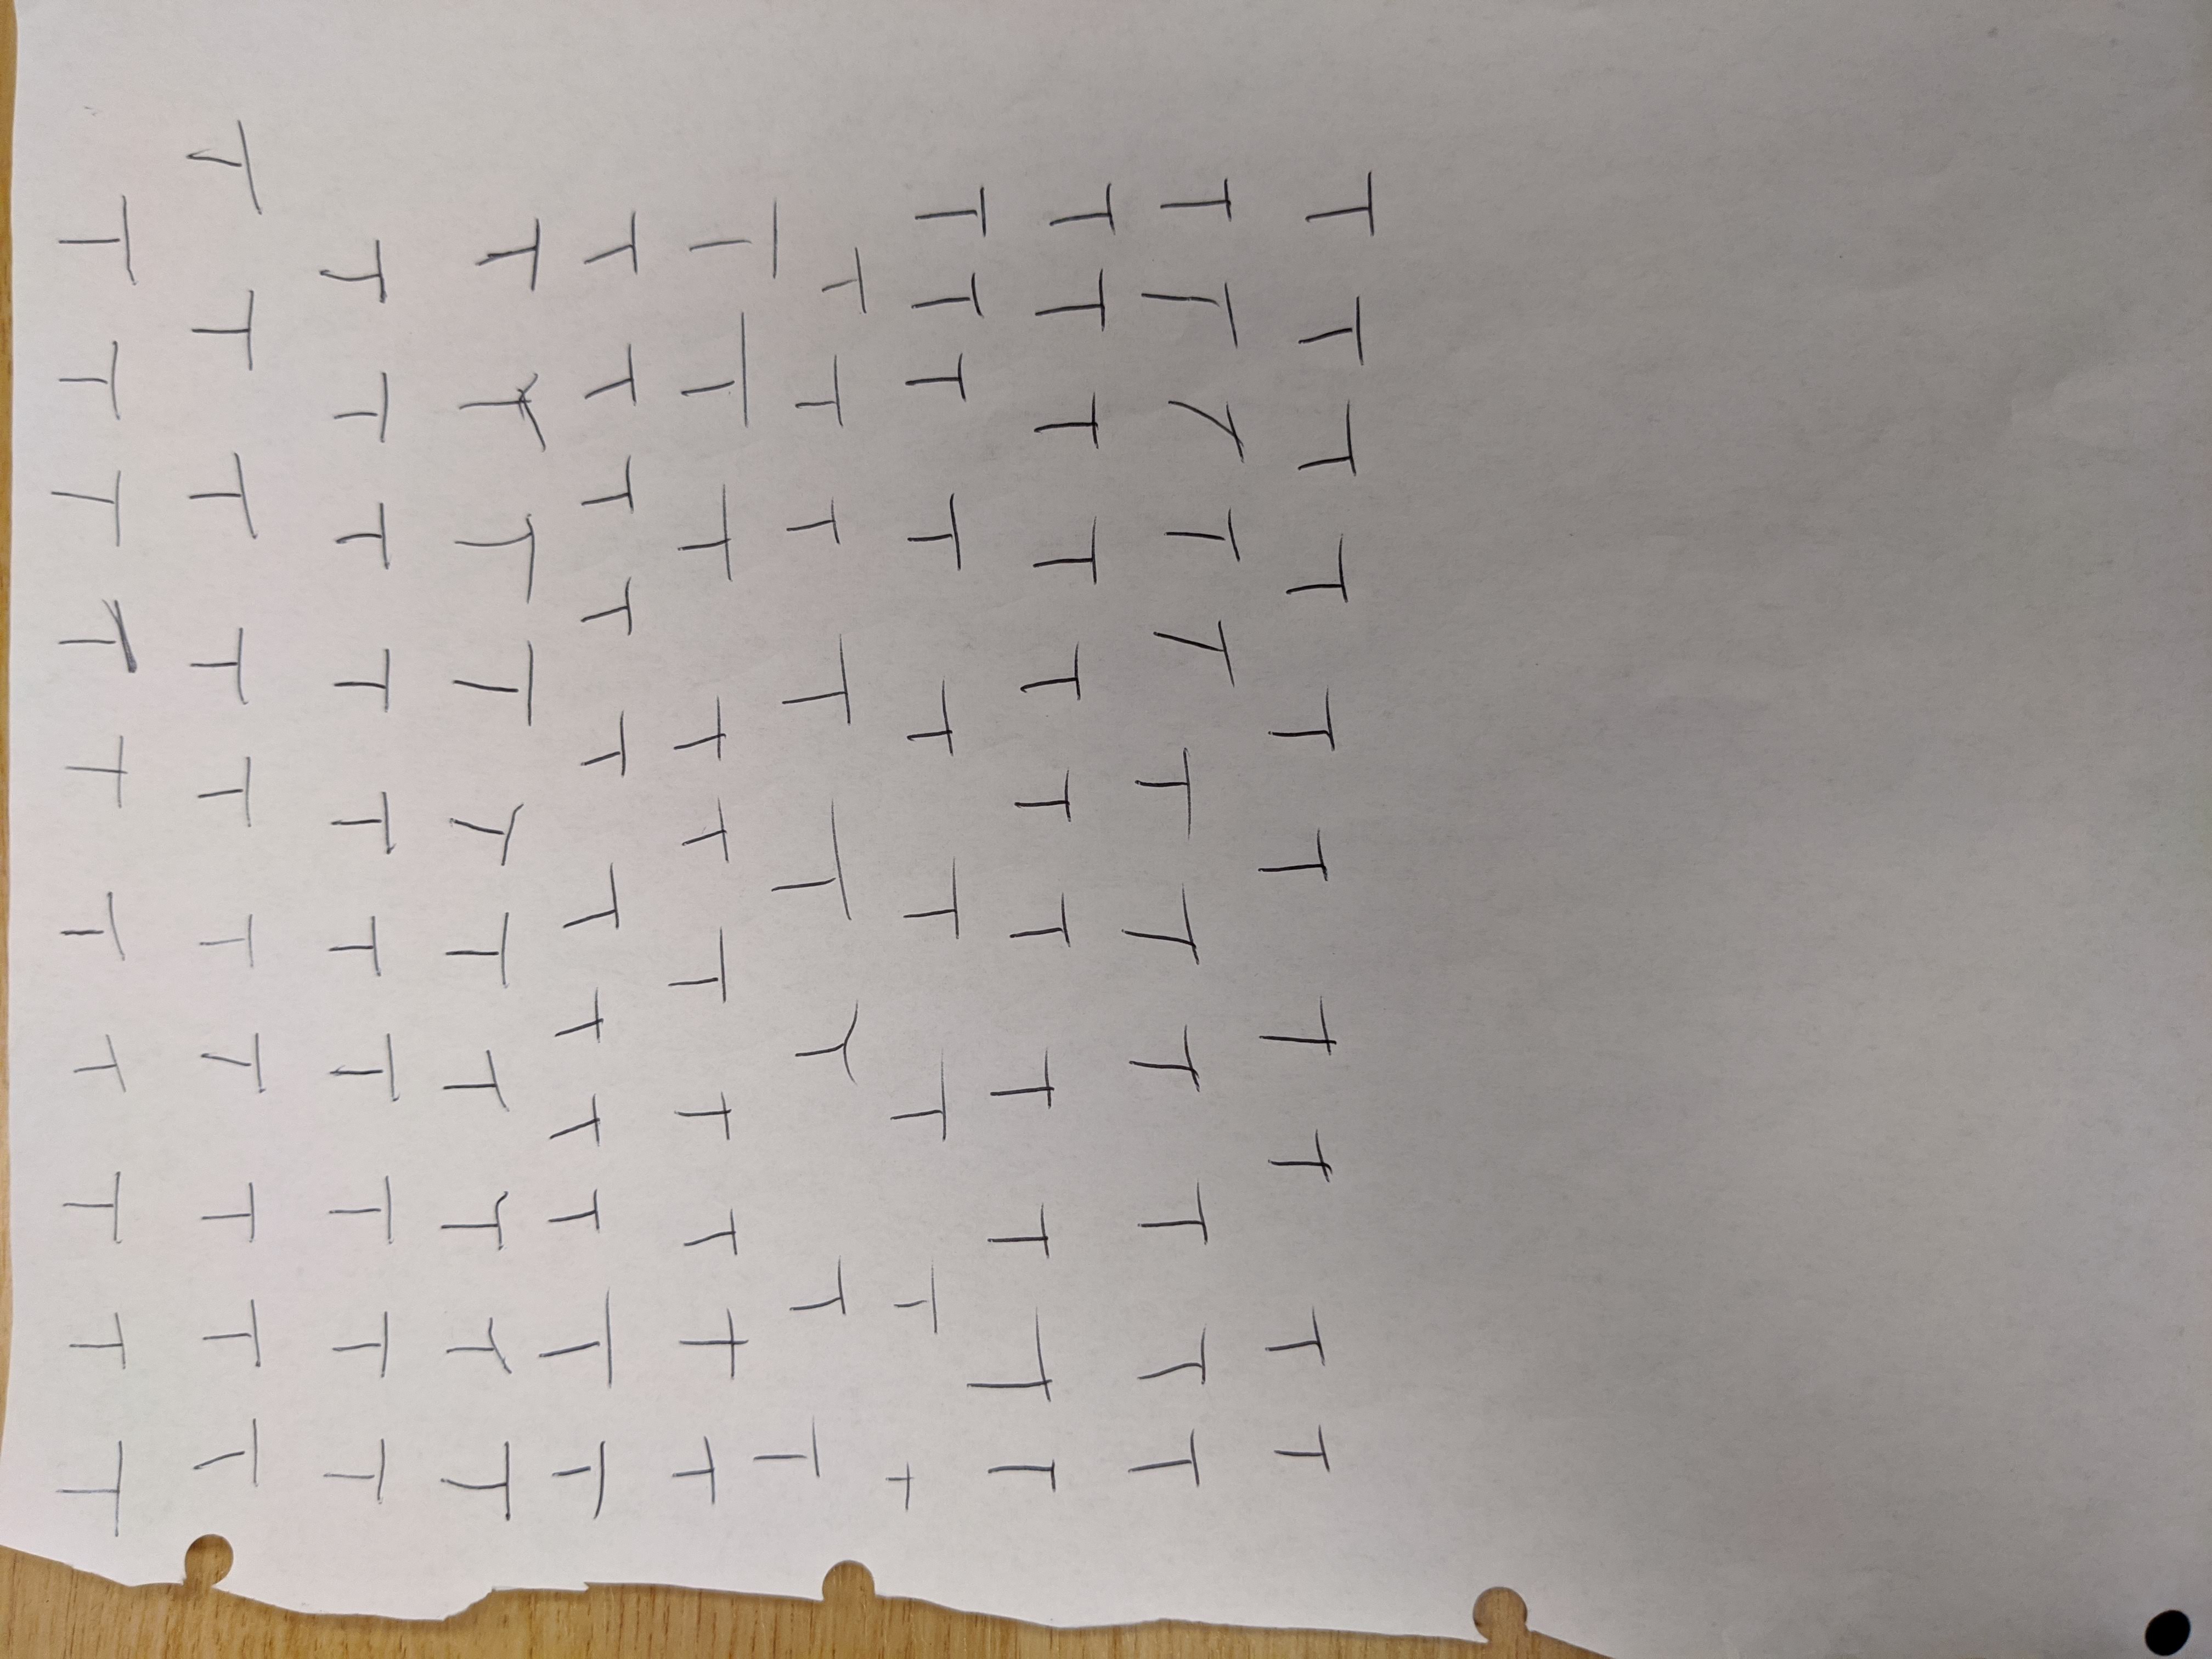 ⊥ ⊥ ⊥ ⊥ ⊥ ⊥ ⊥ ⊥ ⊥ ⊥
⊥ ⊥ ⊥ ⊥ ⊥ ⊥ ⊥ ⊥ ⊥ ⊥
⊥ ⊥ ⊥ ⊥ ⊥ ⊥ ⊥ ⊥ ⊥ ⊥
⊥ ⊥ ⊥ ⊥ ⊥ ⊥ ⊥ ⊥ ⊥ ⊥
⊥ ⊥ ⊥ ⊥ ⊥ ⊥ ⊥ ⊥ ⊥ ⊥ ⊥
⊥ ⊥ ⊥ ⊥ ⊥ ⊥ ⊥ ⊥ ⊥ ⊥
⊥ ⊥ ⊥ ⊥ ⊥ ⊥ ⊥ ⊥
⊥ ⊥ ⊥ ⊥ ⊥ ⊥ ⊥ ⊥ ⊥
⊥ ⊥ ⊥ ⊥ ⊥ ⊥ ⊥ ⊥ ⊥ ⊥ ⊥
⊥ ⊥ ⊥ ⊥ ⊥ ⊥ ⊥ ⊥ ⊥ ⊥ ⊥
⊥ ⊥ ⊥ ⊥ ⊥ ⊥ ⊥ ⊥ ⊥ ⊥